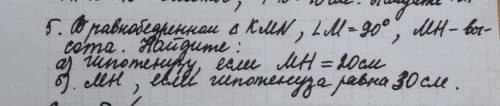 5. В равнобедренном Δ KMN, ∠M = 90°, MH - вы-
сота. Найдите:
а) гипотенузу, если MH = 20см
б) MH, если гипотенуза равна 30см.